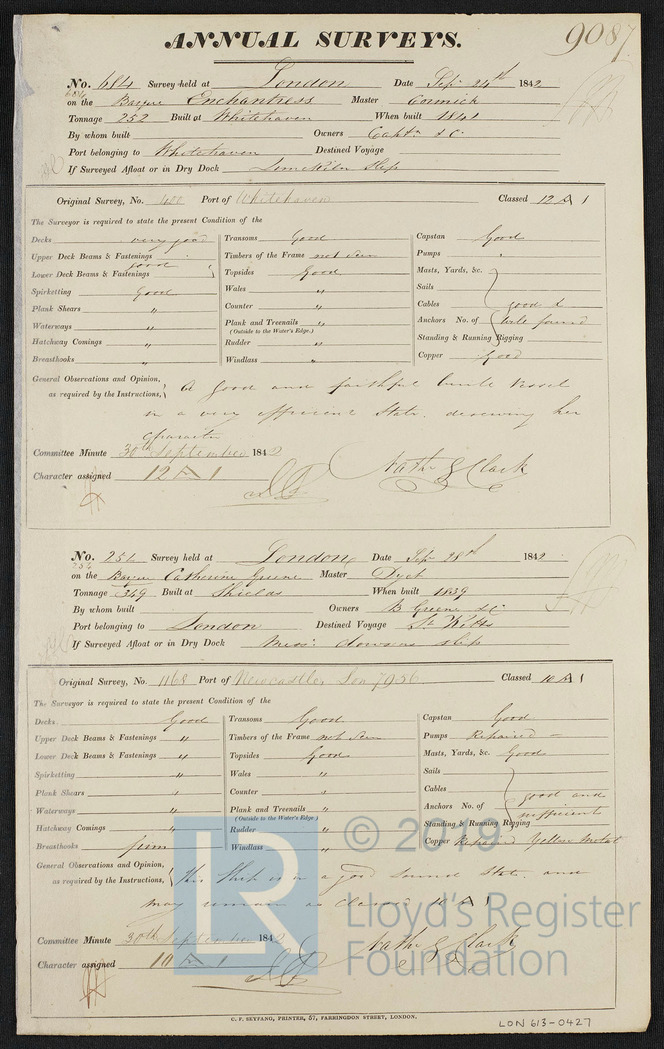 ANNUAL SURVEYS.
9087
No. 684 Survey held at London Date Sepr 24th 1842
684
on the Barque Enchantress Master Cormick
Tonnage 252 Built at Whitehaven When built 1841
By whom built Owners Captn & C.
Port belonging to Whitehaven Destined Voyage
If Surveyed Afloat or in Dry Dock Limekiln slip
Original Survey, No. 400 Port of Whitehaven Classed 12 A 1
The Surveyor is required to state the present Condition of the
Decks very good Transoms Good Capstan Good
Upper Deck Beams & Fastenings good Timbers of the Frame not seen Pumps "
Lower Deck Beams & Fastenings Topsides Good Masts, Yards, &c.
Spirketting Good Wales " Sails
Plank Shears " Counter " Cables good &
Waterways " Plank and Treenails " Anchors No. of well found
(Outside to the Water's Edge.)
Hatchway Comings " Rudder " Standing & Running Rigging
Breasthooks " Windlass " Copper Good
General Observations and Opinion, as required by the Instructions, A good and faithful built vessel
in a very efficient state. deserving her
character
Committee Minute 30th September 1842
Character assigned 12 A 1 Nathl G Clark
No. 254 Survey held at London Date Sepr 28th 1842
254
on the Barque Catherine Greene Master Dyet
Tonnage 349 Built at Shields When built 1839
By whom built Owners B Greene & C.
Port belonging to London Destined Voyage St Kitts
If Surveyed Afloat or in Dry Dock Messrs slip
Original Survey, No. 1168 Port of Newcastle, Lon 7956 Classed 10 A 1
The Surveyor is required to state the present Condition of the
Decks Good Transoms Good Capstan Good
Upper Deck Beams & Fastenings " Timbers of the Frame not seen Pumps Repaired
Lower Deck Beams & Fastenings " Topsides Good Masts, Yards, &c. Good
Spirketting " Wales " Sails
Plank Shears " Counter " Cables good and
Waterways " Plank and Treenails " Anchors No. of sufficient
(Outside to the Water's Edge.)
Hatchway Comings " Rudder " Standing & Running Rigging
Breasthooks firm Windlass " Copper Repaired Yellow Metal
General Observations and Opinion, as required by the Instructions, This Ship is in a good sound State. and
may remain as Classed 10 A 1
Committee Minute 30th September 1842 Nathl G Clark
Character assigned 10 A 1
C. F. SEYFANG, PRINTER, 57, FARRINGDON STREET, LONDON.
LON 613-0427
LR © 2019
Lloyd's Register
Foundation